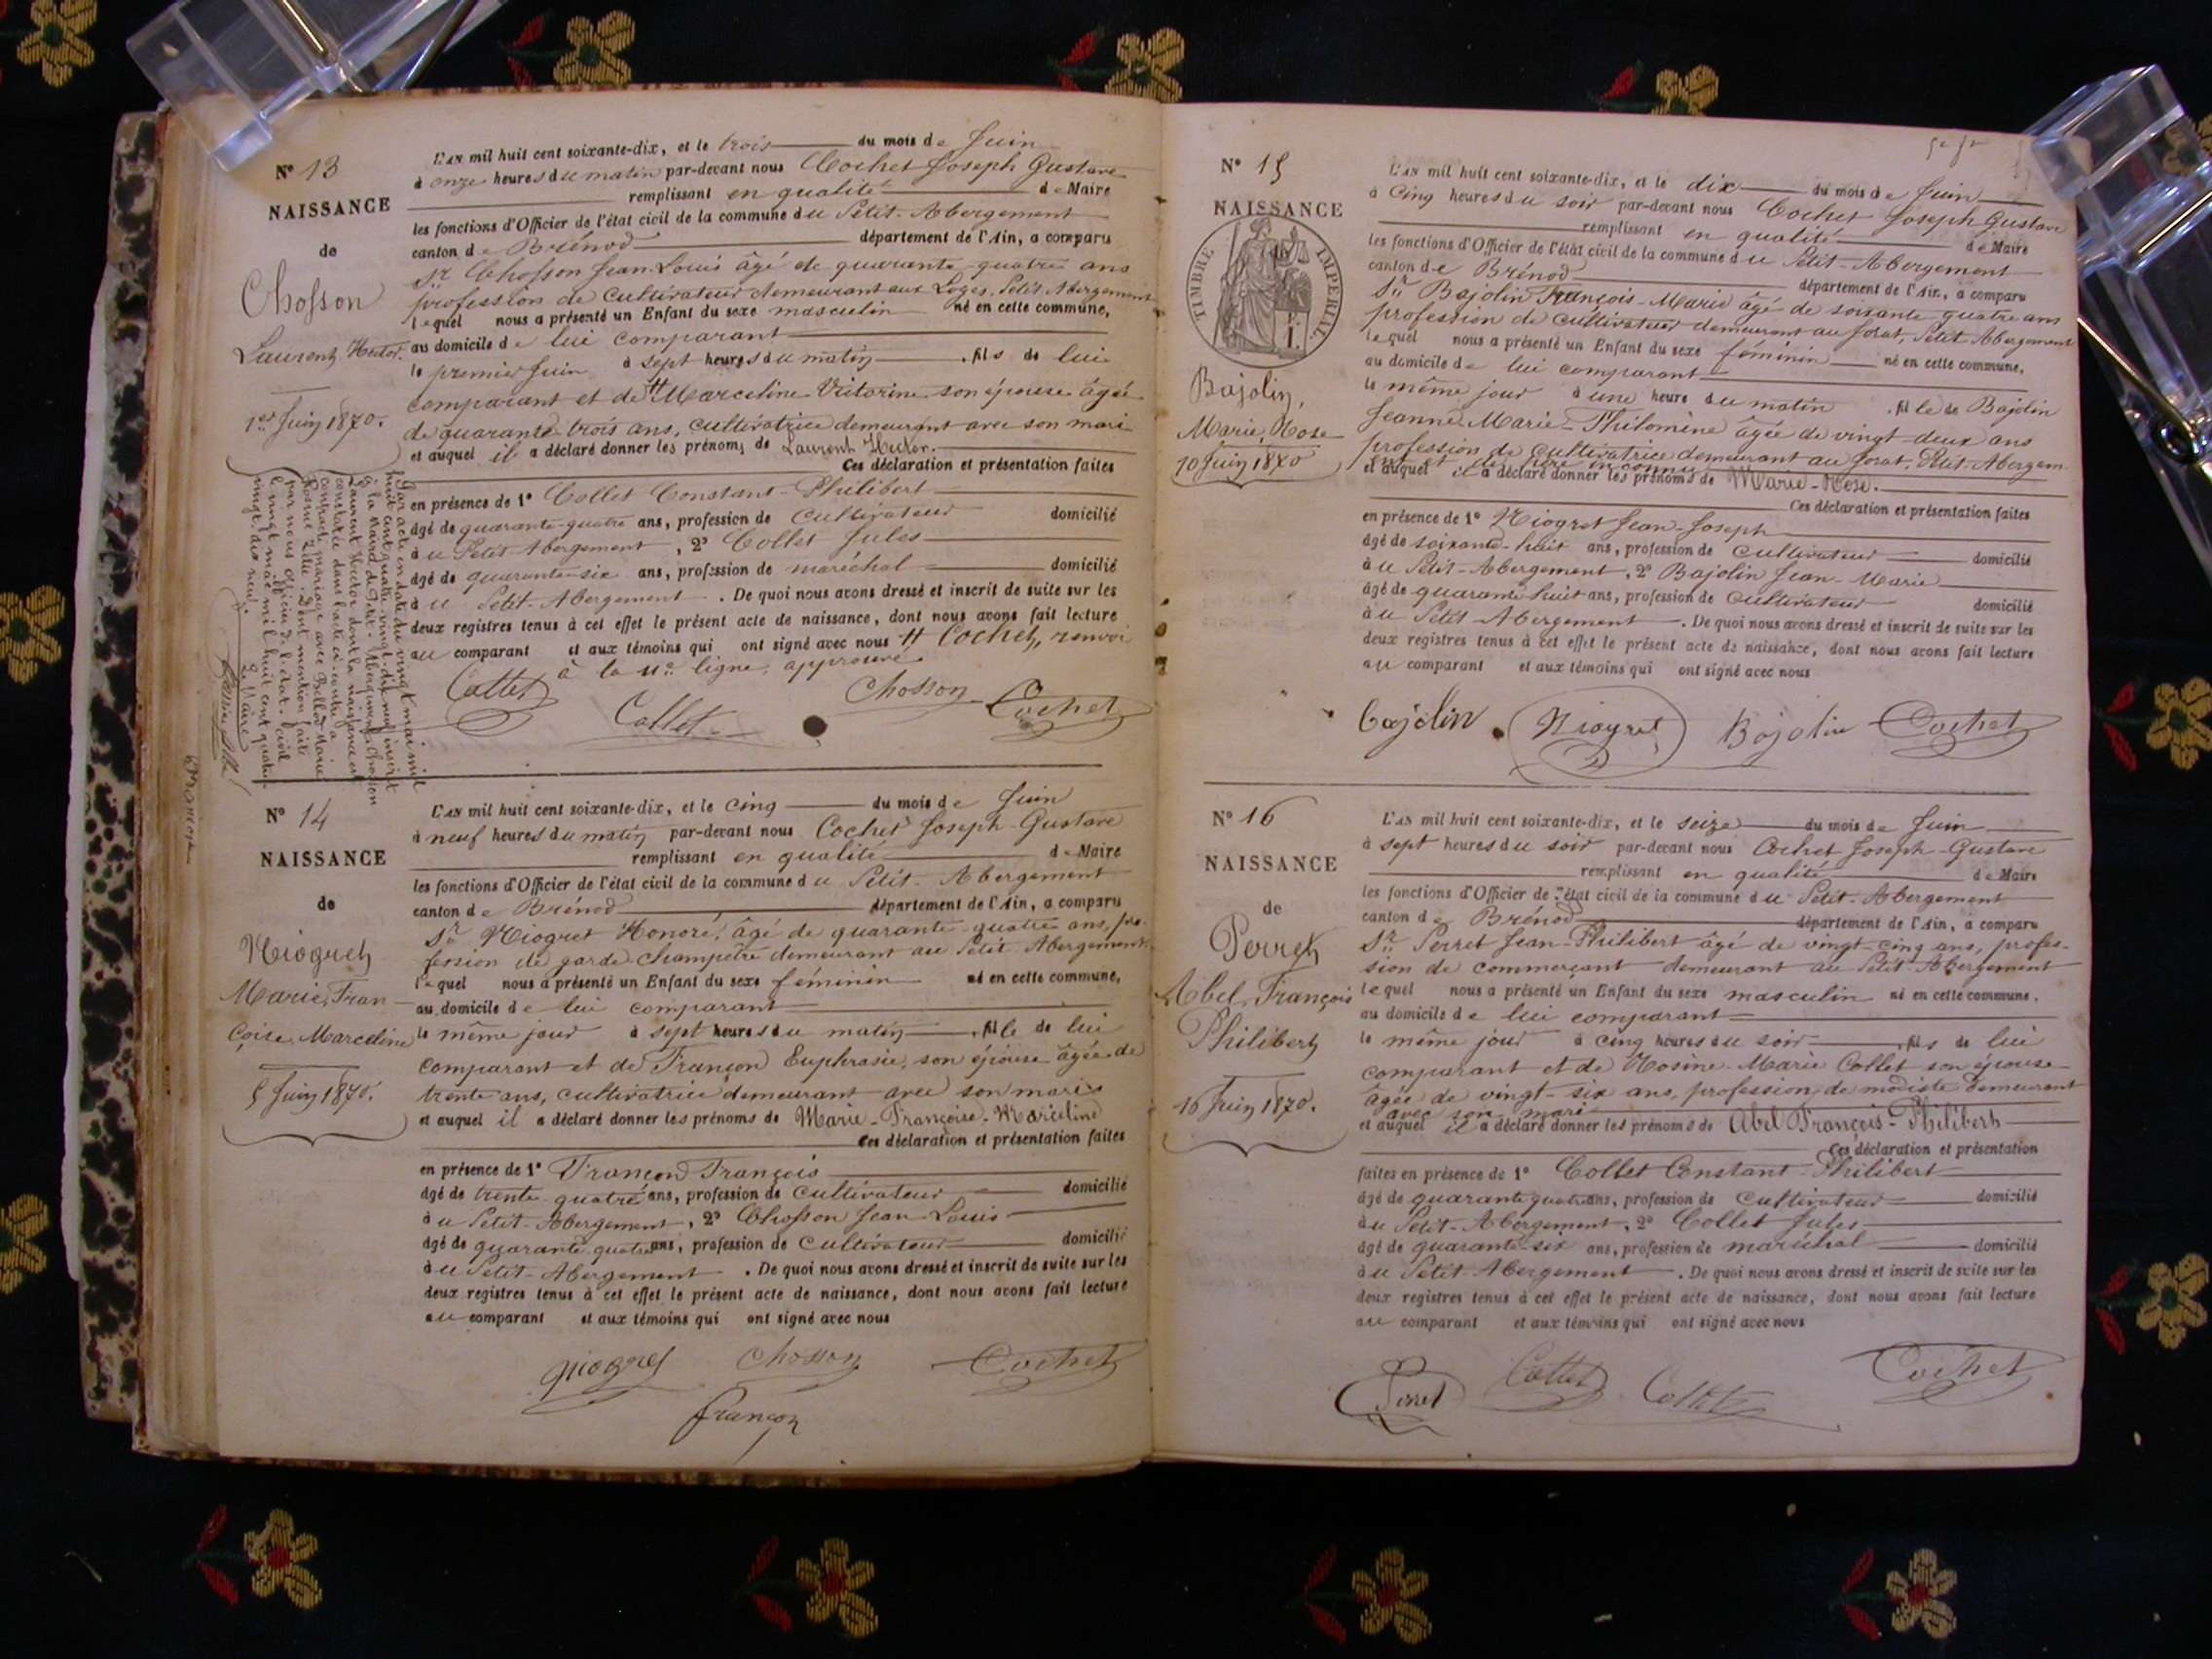 N° 13
NAISSANCE
de
Chosson
Laurent Hector.
1er Juin 1870.
L'AN mil huit cent soixante-dix, et le trois du mois de Juin
à onze heures du matin par-devant nous Cochet Joseph Gustave
remplissant en qualité de Maire
les fonctions d'Officier de l'état civil de la commune du Petit-Abergement
canton de Brénod département de l'Ain, a comparu
Sr Chosson Jean-Louis âgé de quarante-quatre ans
profession de cultivateur demeurant aux Loges, Petit Abergement
lequel nous a présenté un Enfant du sexe masculin né en cette commune,
au domicile de lui comparant
le premier Juin à sept heures du matin, fils de lui
comparant et de # Marceline Victorine son épouse âgée
de quarante trois ans, cultivatrice demeurant avec son mari
et auquel il a déclaré donner les prénoms de Laurent Hector.
Ces déclaration et présentation faites
en présence de 1° Collet Constant-Philibert
âgé de quarante-quatre ans, profession de cultivateur domicilié
au Petit-Abergement, 2° Collet Jules
âgé de quarante-six ans, profession de maréchal domicilié
au Petit-Abergement. De quoi nous avons dressé et inscrit de suite sur les
deux registres tenus à cet effet le présent acte de naissance, dont nous avons fait lecture
au comparant et aux témoins qui ont signé avec nous # Cochet, renvoi
à la 11e ligne, approuvé
Collet Collet Chosson Cochet
Par acte en date du vingt mai mil
huit cent quatre-vingt-dix neuf inscrit
à la mairie du Petit-Abergement, Chosson
Laurent Hector dont la naissance est
constatée dans l'acte ci-contre a
contracté mariage avec Marie
Dont mention faite
par nous officier de l'état civil
le vingt mai mil huit cent quatre-
vingt-dix neuf.
Le Maire
N° 14
NAISSANCE
de
Niogret
Marie, Fran-
çoise, Marceline
5 Juin 1870.
L'AN mil huit cent soixante-dix, et le cinq du mois de Juin
à neuf heures du matin par-devant nous Cochet Joseph-Gustave
remplissant en qualité de Maire
les fonctions d'Officier de l'état civil de la commune du Petit-Abergement
canton de Brénod département de l'Ain, a comparu
Sr Niogret Honoré, âgé de quarante-quatre ans, pro-
fession de garde-champêtre demeurant au Petit Abergement
lequel nous a présenté un Enfant du sexe féminin né en cette commune,
au domicile de lui comparant
le même jour à sept heures du matin, fille de lui
comparant et de Françon Euphrasie, son épouse âgée de
trente ans, cultivatrice demeurant avec son mari
et auquel il a déclaré donner les prénoms de Marie-Françoise-Marceline
Ces déclaration et présentation faites
en présence de 1° Françon François
âgé de trente-quatre ans, profession de cultivateur domicilié
au Petit-Abergement, 2° Chosson Jean-Louis
âgé de quarante-quatre ans, profession de cultivateur domicilié
au Petit-Abergement. De quoi nous avons dressé et inscrit de suite sur les
deux registres tenus à cet effet le présent acte de naissance, dont nous avons fait lecture
au comparant et aux témoins qui ont signé avec nous
Niogret Chosson Cochet
françon
N° 15
NAISSANCE
TIMBRE IMPERIAL
Bajolin,
Marie, Rose
10 Juin 1870
L'AN mil huit cent soixante-dix, et le dix du mois de Juin
à cinq heures du soir par-devant nous Cochet Joseph Gustave
remplissant en qualité de Maire
les fonctions d'Officier de l'état civil de la commune du Petit-Abergement
canton de Brénod département de l'Ain, a comparu
Sr Bajolin François-Marie âgé de soixante-quatre ans
profession de cultivateur demeurant au Jorat, Petit Abergement
lequel nous a présenté un Enfant du sexe féminin né en cette commune,
au domicile de lui comparant
le même jour à une heure du matin, fille de Bajolin
Jeanne-Marie-Philomène âgée de vingt-deux ans
profession de cultivatrice demeurant au Jorat, Petit-Abergem-
ent et de père inconnu
et auquel il a déclaré donner les prénoms de Marie-Rose.
Ces déclaration et présentation faites
en présence de 1° Niogret Jean-Joseph
âgé de soixante-huit ans, profession de cultivateur domicilié
au Petit-Abergement, 2° Bajolin Jean-Marie
âgé de quarante huit ans, profession de cultivateur domicilié
au Petit-Abergement. De quoi nous avons dressé et inscrit de suite sur les
deux registres tenus à cet effet le présent acte de naissance, dont nous avons fait lecture
au comparant et aux témoins qui ont signé avec nous
Bajolin Niogret Bajolin Cochet
N° 16
NAISSANCE
de
Perret
Abel, François
Philibert
16 Juin 1870.
L'AN mil huit cent soixante-dix, et le seize du mois de Juin
à sept heures du soir par-devant nous Cochet Joseph-Gustave
remplissant en qualité de Maire
les fonctions d'Officier de l'état civil de la commune du Petit-Abergement
canton de Brénod département de l'Ain, a comparu
Sr Perret Jean-Philibert âgé de vingt-cinq ans, profes-
sion de commerçant demeurant au Petit-Abergement
lequel nous a présenté un Enfant du sexe masculin né en cette commune,
au domicile de lui comparant
le même jour à cinq heures du soir, fils de lui
comparant et de Rosine-Marie Collet son épouse
âgée de vingt-six ans, profession de modiste demeurant
avec son mari
et auquel il a déclaré donner les prénoms de Abel François-Philibert
Ces déclaration et présentation
faites en présence de 1° Collet Constant-Philibert
âgé de quarante quatre ans, profession de cultivateur domicilié
au Petit-Abergement, 2° Collet Jules
âgé de quarante-six ans, profession de maréchal domicilié
au Petit-Abergement. De quoi nous avons dressé et inscrit de suite sur les
deux registres tenus à cet effet le présent acte de naissance, dont nous avons fait lecture
au comparant et aux témoins qui ont signé avec nous
Perret Collet Collet Cochet